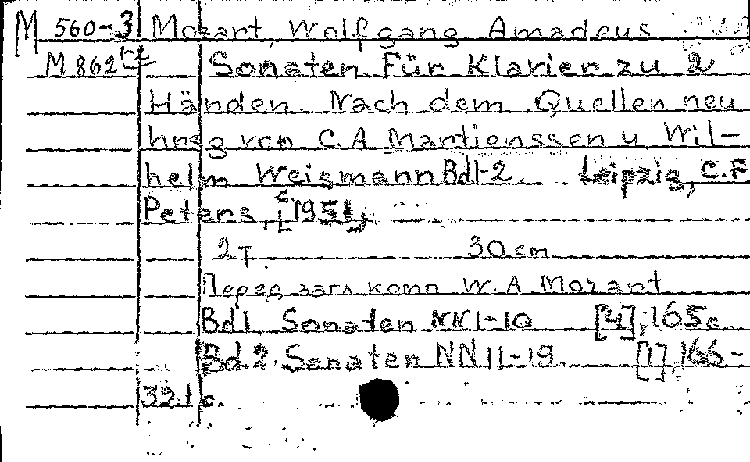 M 560-3 Mozart, Wolfgang Amadeus
M 862 Sonaten Für Klavier zu 2
Händen. Nach dem Quellen neu
hrsg von C. A Martienssen u Wil-
helm Weismann Bd 1-2. Leipzig, C. F
Peters, [1951],
2 т 30 cm
Перед загл комп W. A Mozart
Bd 1. Sonaten NN 1-10 [4], 165 c
Bd. 2. Sonaten NN 11-19. [1], 166-
321 c.